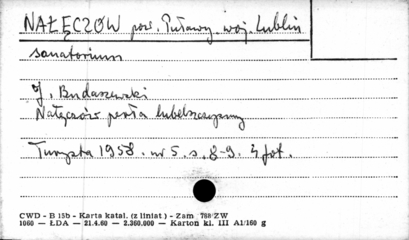 NAŁĘCZÓW pow. Puławy. woj. Lublin
sanatorium
J. Budaszewski
Nałęczów perła lubelszczyzny
Turysta 1958. nr 5. s. 8-9. 4 fot.
CWD - B 15b - Karta katal. (z liniat) - Zam 768 ZW
1060 — ŁDA — 21.4.60 — 2.360.000 — Karton kl. III A1/160 g